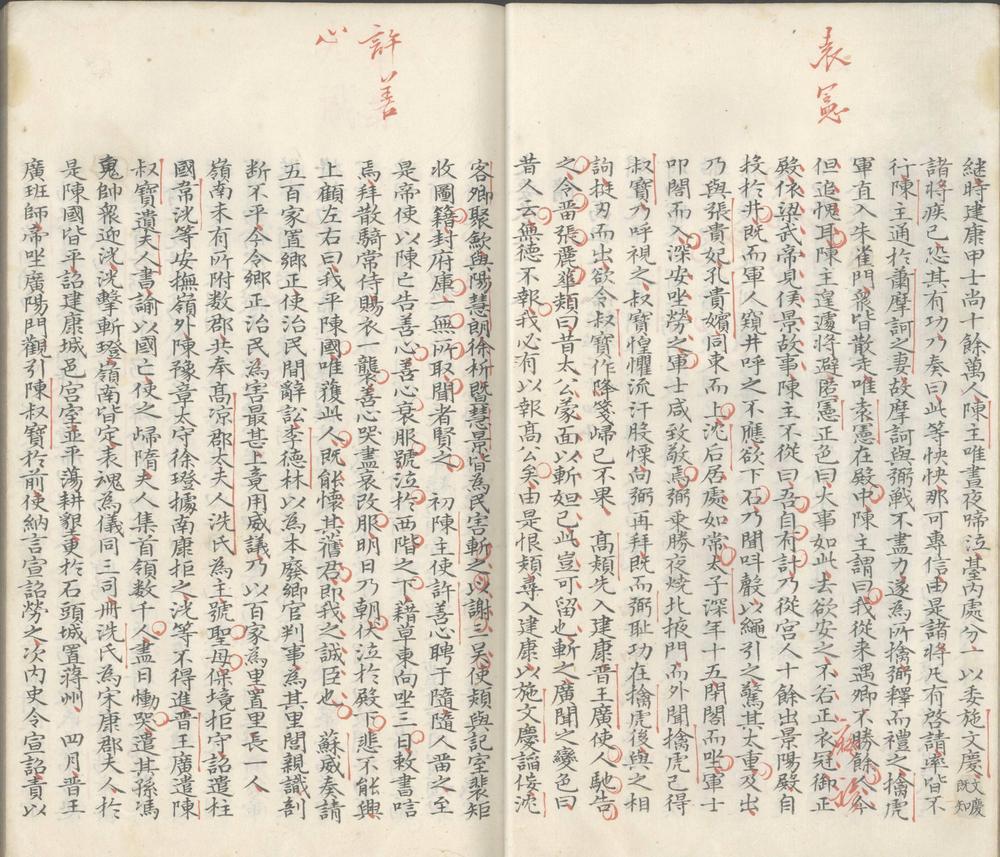 袁憲
繼時建康甲士尚十餘萬人陳主唯晝夜啼泣臺內處分一以委施文慶文慶既知
諸將疾已恐其有功乃奏曰此等怏怏那可專信由是諸將凡有啓請率皆不
行陳王通於蕭摩訶之妻故摩訶與弼戰不盡力遂為所擒弼釋而禮之擒虎
軍直入朱雀門衆皆散走唯袁憲在殿中陳主謂曰我從來遇卿不勝餘人今
但追愧耳陳主遑遽將避匿憲正色曰大事如此去欲安之不若正衣冠御正
殿依梁武帝見侯景故事陳主不從曰吾自有計乃從宮人十餘出景陽殿自
投於井既而軍人窺井呼之不應欲下石乃聞呌聲以繩引之驚其太重及出
乃與張貴妃孔貴嬪同束而上沈后居處如常太子深年十五閉閤而坐軍士
叩閤而入深安坐勞之軍士咸致敬焉弼乘勝夜燒北掖門而外聞擒虎已得
叔寶乃呼視之叔寶惶懼流汗股慄向弼再拜既而弼恥功在擒虎後與之相
訽挺刃而出欲令叔寶作降箋歸已不果 高熲先入建康晉王廣使人馳告
之令畱張麗華熲曰昔太公蒙面以斬妲已此豈可留也斬之廣聞之變色曰
昔人云無德不報我必有以報高公矣由是恨熲尋入建康以施文慶謟佞沈
許善心
客卿聚歛與陽慧朗徐析曁慧景皆為民害斬之以謝三吴使熲與記室裴矩
收圖籍封府庫一無所取聞者賢之 初陳主使許善心聘于隋隋人畱之至
是帝使以陳亡告善心善心衰服號泣於西階之下藉草東向坐三日敕書唁
焉拜散騎常侍賜衣一襲善心哭盡哀改服明日乃朝伏泣於殿下悲不能興
上顧左右曰我平陳國唯獲此人既能懷其舊君即我之誠臣也 蘇威奏請
五百家置鄉正使治民間辭訟李德林以為本廢鄉官判事為其里閭親識剖
断不平今令鄉正治民為害最甚上竟用威議乃以百家為里置里長一人
嶺南未有所附數郡共奉高凉郡太夫人洗氏為主號聖母保境拒守詔遣柱
國韋洸等安撫嶺外陳豫章太守徐璒據南康拒之洸等不得進晉王廣遣陳
叔寶遺夫人書諭以國亡使之歸隋夫人集首領數千人盡日慟哭遣其孫馮
䰟帥衆迎洸洸擊斬璒嶺南皆定表魂為儀同三司册洗氏為宋康郡夫人於
是陳國皆平詔建康城邑宮室並平蕩耕墾更於石頭城置蔣州 四月晉王
廣班師帝坐廣陽門觀引陳叔寶於前使納言宣詔勞之次內史令宣詔責以